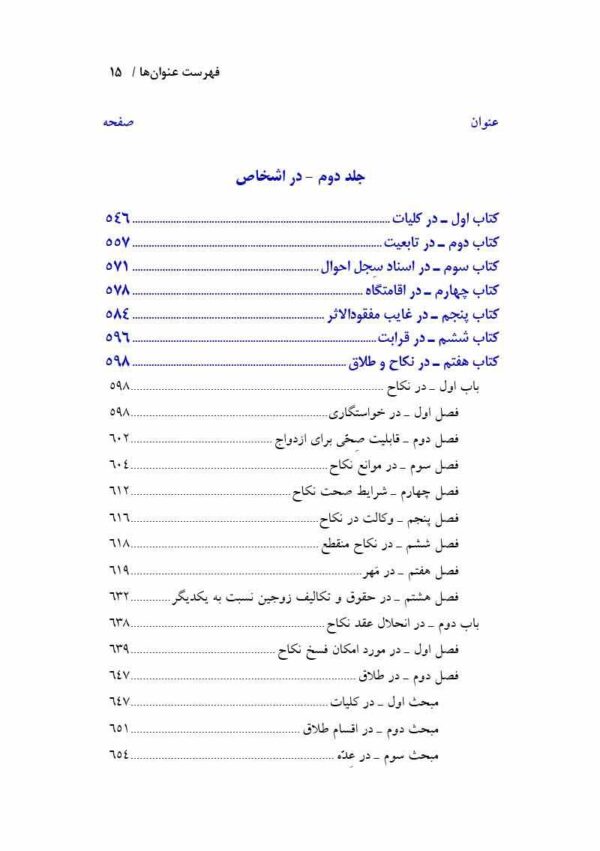 فهرست عنوان‌ها / ۱۵
عنوان صفحه
جلد دوم – در اشخاص
کتاب اول ـ در کلیات ........ ٥٤٦
کتاب دوم ـ در تابعیت ........ ٥٥٧
کتاب سوم ـ در اسناد سِجل احوال ........ ٥٧١
کتاب چهارم ـ در اقامتگاه ........ ٥٧٨
کتاب پنجم ـ در غایب مفقودالاثر ........ ٥٨٤
کتاب ششم ـ در قرابت ........ ٥٩٦
کتاب هفتم ـ در نکاح و طلاق ........ ٥٩٨
باب اول ـ در نکاح ........ ٥٩٨
فصل اول ـ در خواستگاری ........ ٥٩٨
فصل دوم ـ قابلیت صِحّی برای ازدواج ........ ٦٠٢
فصل سوم ـ در موانع نکاح ........ ٦٠٤
فصل چهارم ـ شرایط صحت نکاح ........ ٦١٢
فصل پنجم ـ وکالت در نکاح ........ ٦١٦
فصل ششم ـ در نکاح منقطع ........ ٦١٨
فصل هفتم ـ در مَهر ........ ٦١٩
فصل هشتم ـ در حقوق و تکالیف زوجین نسبت به یکدیگر ........ ٦٣٢
باب دوم ـ در انحلال عقد نکاح ........ ٦٣٨
فصل اول ـ در مورد امکان فسخ نکاح ........ ٦٣٩
فصل دوم ـ در طلاق ........ ٦٤٧
مبحث اول ـ در کلیات ........ ٦٤٧
مبحث دوم ـ در اقسام طلاق ........ ٦٥١
مبحث سوم ـ در عِدّه ........ ٦٥٤